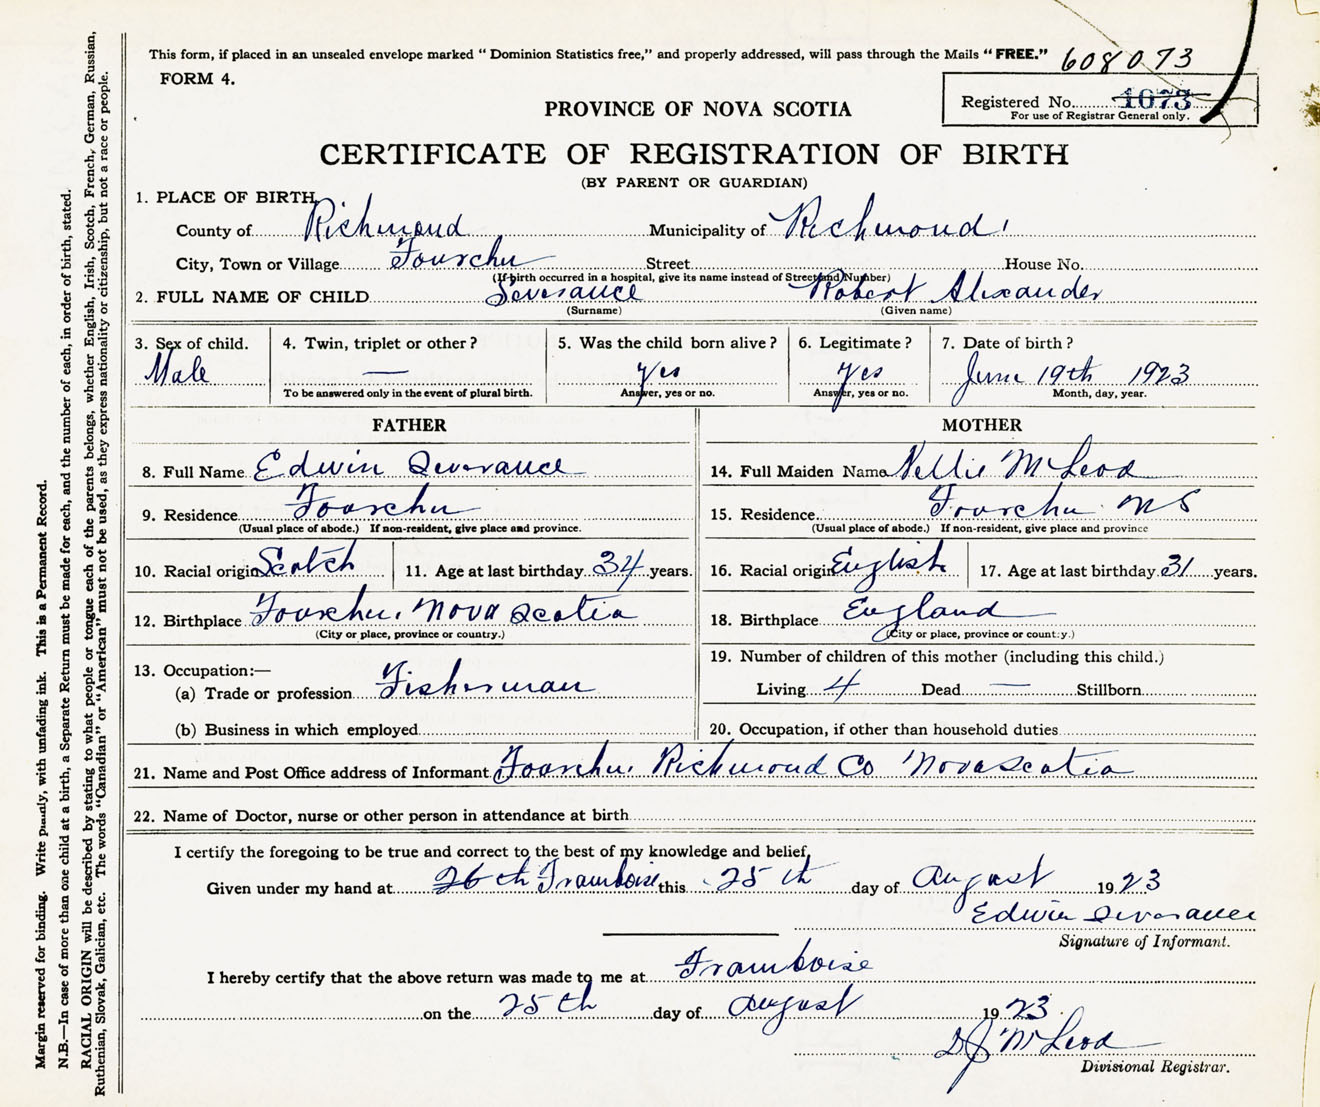 This form, if placed in an unsealed envelope marked "Dominion Statistics free," and properly addressed, will pass through the Mails "FREE." 608073
FORM 4.
Registered No. 1073
For use of Registrar General only.
PROVINCE OF NOVA SCOTIA
CERTIFICATE OF REGISTRATION OF BIRTH
(BY PARENT OR GUARDIAN)
1. PLACE OF BIRTH,
County of Richmond Municipality of Richmond
City, Town or Village Fourchu Street House No.
(If birth occurred in a hospital, give its name instead of Street and Number)
2. FULL NAME OF CHILD Severance Robert Alexander
(Surname) (Given name)
3. Sex of child. 4. Twin, triplet or other? 5. Was the child born alive? 6. Legitimate? 7. Date of birth?
Male — Yes Yes June 19th 1923
To be answered only in the event of plural birth. Answer, yes or no. Answer, yes or no. Month, day, year.
FATHER MOTHER
8. Full Name Edwin Severance 14. Full Maiden Name Nellie McLeod
9. Residence Fourchu 15. Residence Fourchu NS
(Usual place of abode.) If non-resident, give place and province. (Usual place of abode.) If non-resident, give place and province
10. Racial origin Scotch 11. Age at last birthday 34 years. 16. Racial origin English 17. Age at last birthday 31 years.
12. Birthplace Fourchu, Nova Scotia 18. Birthplace England
(City or place, province or country.) (City or place, province or country.)
13. Occupation:— 19. Number of children of this mother (including this child.)
(a) Trade or profession Fisherman Living 4 Dead — Stillborn
(b) Business in which employed 20. Occupation, if other than household duties
21. Name and Post Office address of Informant Fourchu, Richmond Co Nova Scotia
22. Name of Doctor, nurse or other person in attendance at birth
I certify the foregoing to be true and correct to the best of my knowledge and belief,
Given under my hand at 26th Framboise this 25th day of August 1923
Edwin Severance
Signature of Informant.
I hereby certify that the above return was made to me at Framboise
on the 25th day of August 1923
DJ McLeod
Divisional Registrar.
Margin reserved for binding. Write plainly, with unfading ink. This is a Permanent Record.
N.B.—In case of more than one child at a birth, a Separate Return must be made for each, and the number of each, in order of birth, stated.
RACIAL ORIGIN will be described by stating to what people or tongue each of the parents belongs, whether English, Irish, Scotch, French, German, Russian,
Ruthenian, Slovak, Galician, etc. The words "Canadian" or "American" must not be used, as they express nationality or citizenship, but not a race or people.